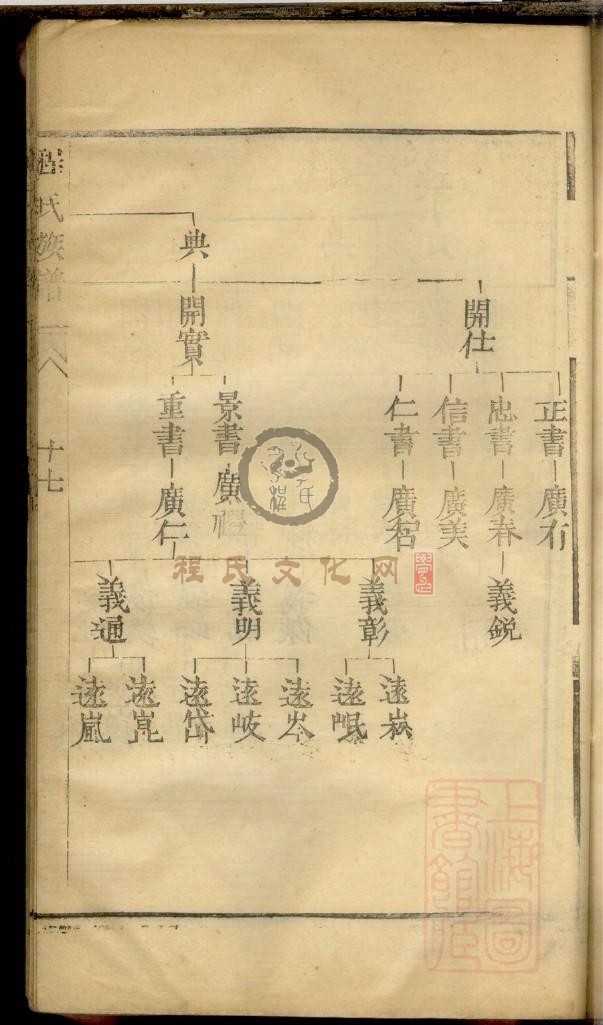 正書 廣有
忠書 廣春 義銳
信書 廣美
仁書
開仕
典
開實
景書
重書 廣仁
義彰
義明
義通
遠岷
遠岑
遠岐
遠岱
遠崑
遠嵐
程氏文化网
程氏族譜
十七
上海圖書館藏